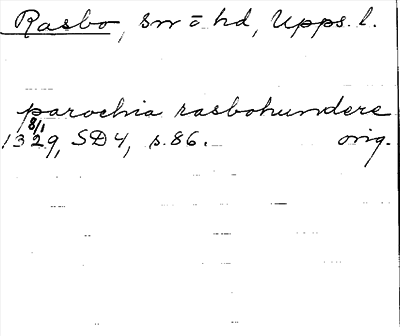 Rasbo, sn o hd, Upps. l.
parochia rasbohundere
8/1
1329, SD 4, s. 86. orig.